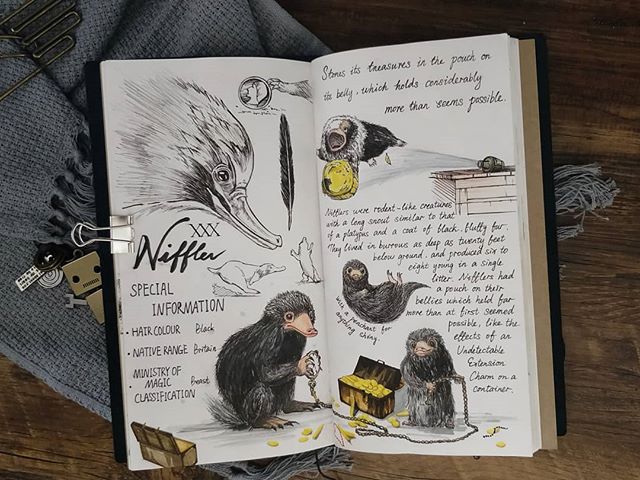 XXX
Niffler
SPECIAL
INFORMATION
• HAIR COLOUR Black
• NATIVE RANGE Britain
MINISTRY OF
• MAGIC Beast
CLASSIFICATION
Stores its treasures in the pouch on
its belly, which holds considerably
more than seems possible.
Nifflers were rodent-like creatures
with a long snout similar to that
of a platypus and a coat of black, fluffy fur.
They lived in burrows as deep as twenty feet
below ground, and produced six to
eight young in a single
litter. Nifflers had
a pouch on their
bellies which held far
more than at first seemed
possible, like the
effects of an
Undetectable
Extension
Charm on a
container.
with a penchant for
anything shiny.